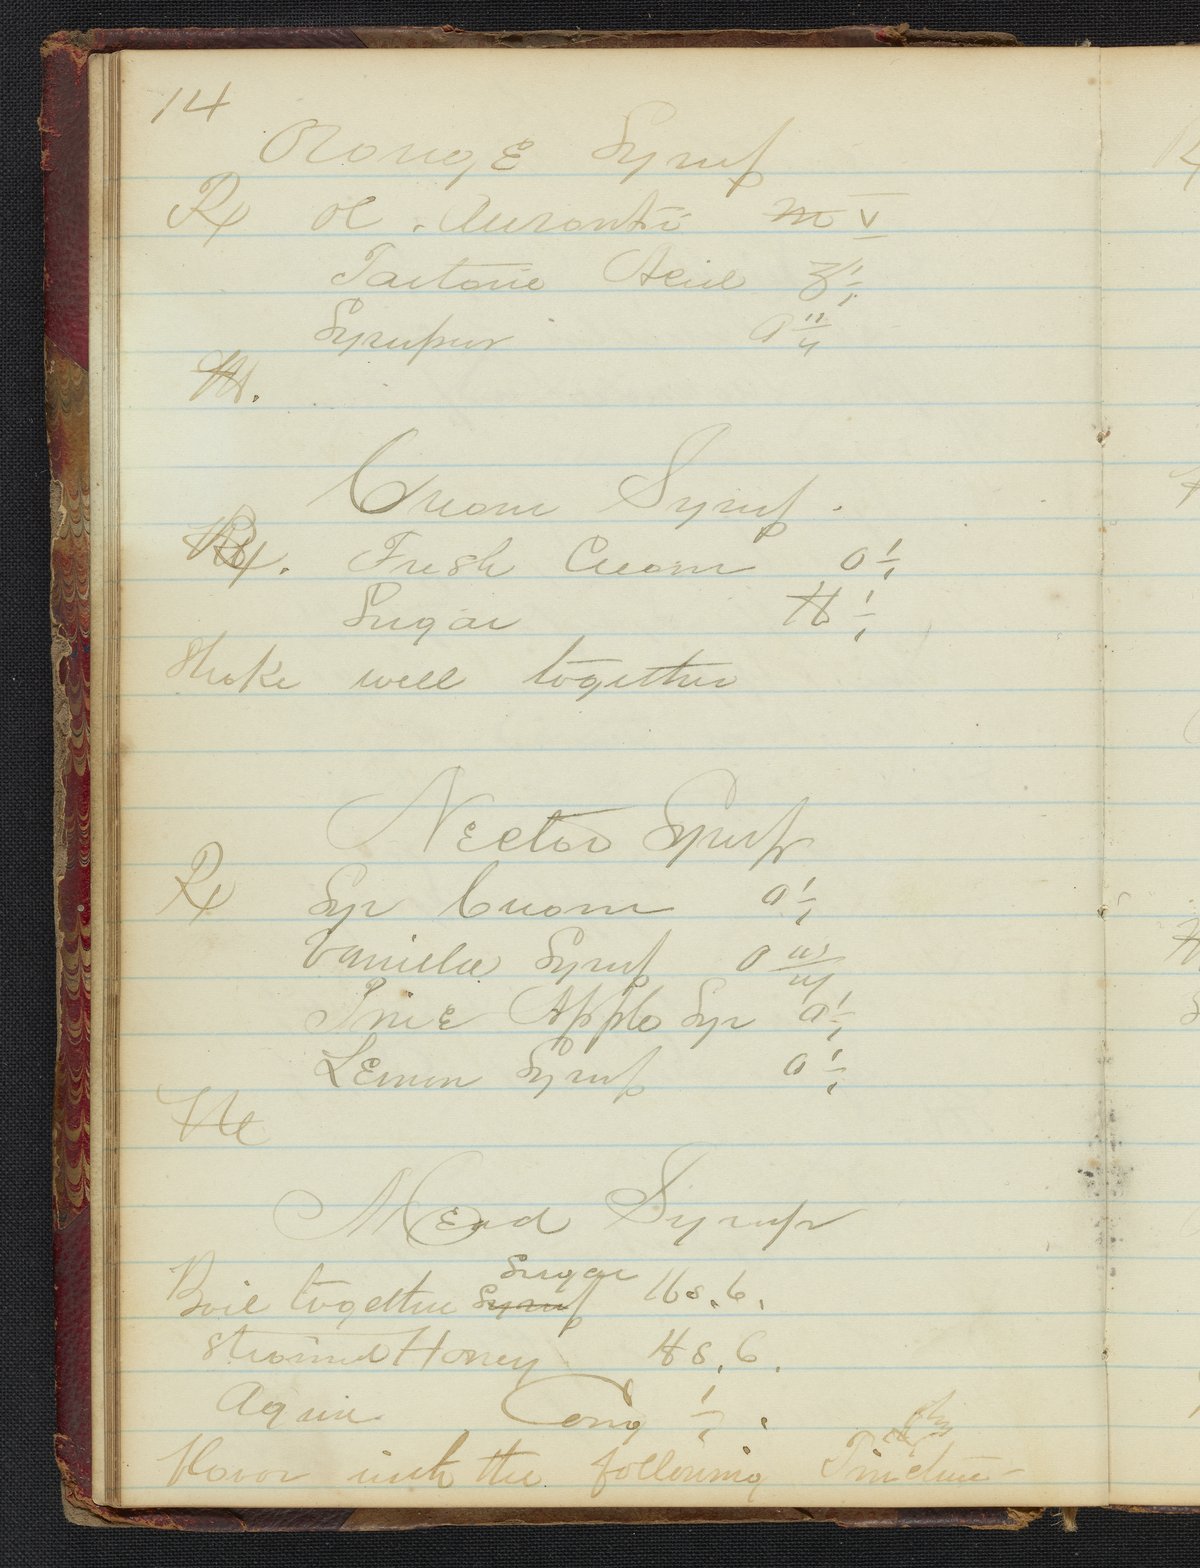 14
Orange Syrup
Rx Ol. Auranti m V
Tartaric Acid ℥i
Syrupus O ii
M.
Cream Syrup.
Rx. Fresh Cream O i
Sugar ℔ i
Shake well together
Nectar Syrup
Rx Syr Cream O i
Vanilla Syrup O iii
Pine Apple Syr O i
Lemon Syrup O i
M
Mead Syrup
Sugar
Boil together Syrup lbs. 6.
Strained Honey lbs. 6.
Aqua Cong i.
Flavor with the following Tincture